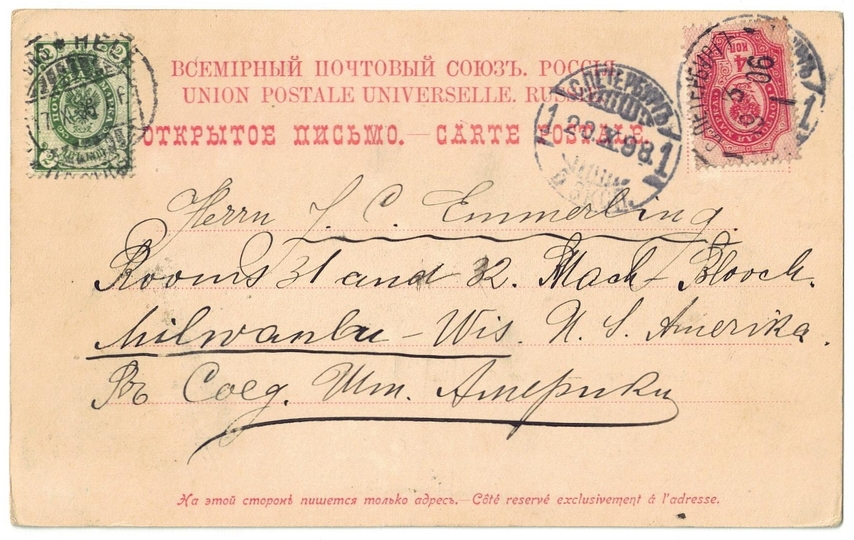 ВСЕМІРНЫЙ ПОЧТОВЫЙ СОЮЗЪ. РОССІЯ
UNION POSTALE UNIVERSELLE. RUSSIE
ОТКРЫТОЕ ПИСЬМО. — CARTE POSTALE.
С.ПЕТЕРБУРГЪ
1 20.X.98 1
4 КОП
Herrn J. C. Emmerling.
Rooms 31 and 32. Mack-Bloock.
Milwaukee - Wis. N. S. Amerika.
Въ Соед. Шт. Америки
На этой сторонѣ пишется только адресъ. — Côté reservé exclusivement á l'adresse.